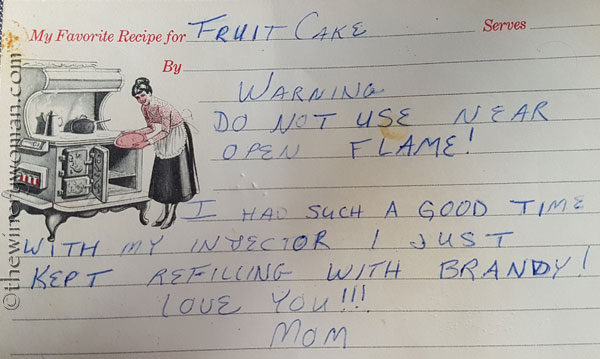 My Favorite Recipe for FRUIT CAKE Serves
By
WARNING
DO NOT USE NEAR
OPEN FLAME!
I HAD SUCH A GOOD TIME
WITH MY INJECTOR I JUST
KEPT REFILLING WITH BRANDY!
LOVE YOU!!!
MOM
©thewineywoman.com